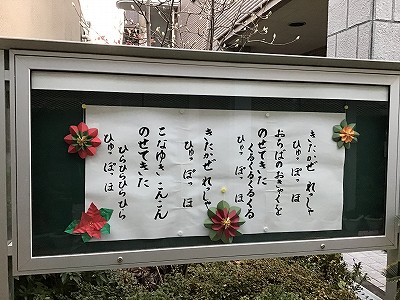 きたかぜ れっしゃ
ひゅっ ぽっ ほ
おちばのおきゃくを
くるくるくるくる
のせてきた
ひゅっ ぽっ ほ
きたかぜ れっしゃ
ひゅっ ぽっ ほ
こなゆき こんこん
のせてきた
ひらひらひらひら
ひゅっ ぽっ ほ